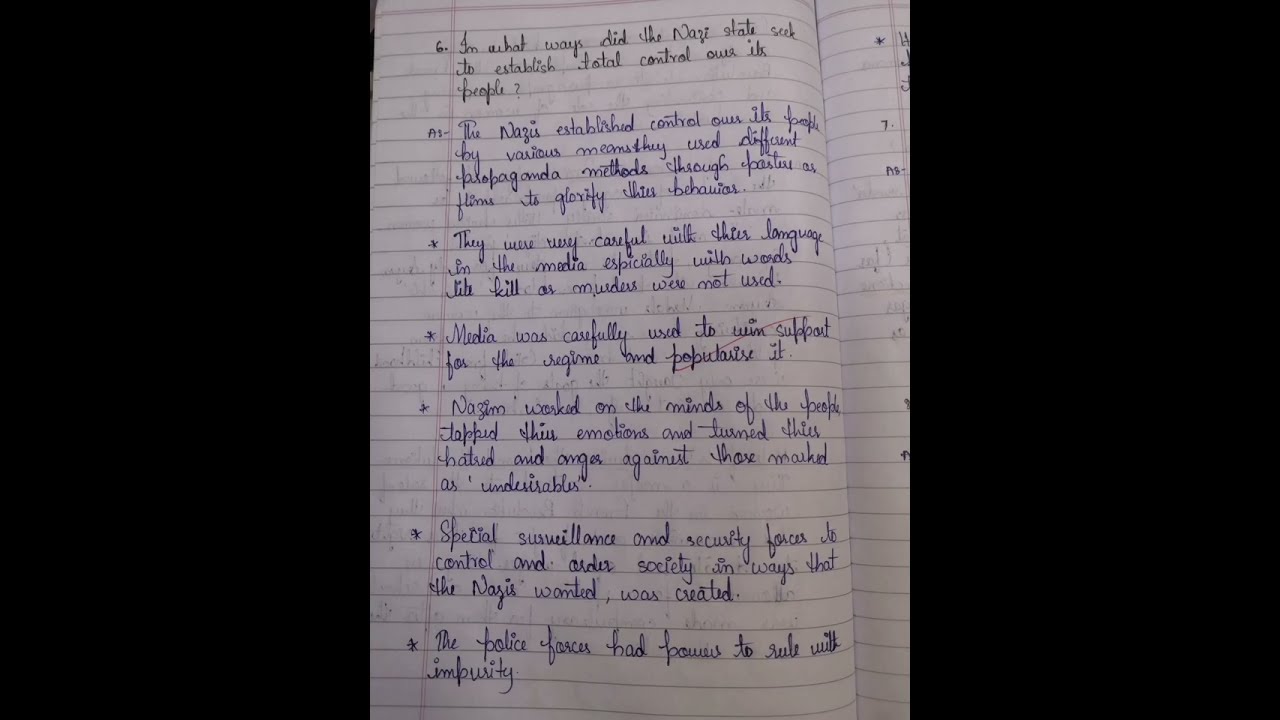 6. In what ways did the Nazi state seek
to establish total control over its
people?
A3- The Nazis established control over its people
by various means they used different
propaganda methods through posters or
flims to glorify thier behavior.
* They were very careful with thier language
in the media espicially with words
like kill or murders were not used.
* Media was carefully used to win support
for the regime and popularise it.
* Nazim worked on the minds of the people,
tapped thier emotions and turned thier
hatred and anger againest those marked
as 'undesirables'.
* Special surveillance and security forces to
control and order society in ways that
the Nazis wanted, was created.
* The police forces had powers to rule with
impurity.
*
7.
A8-